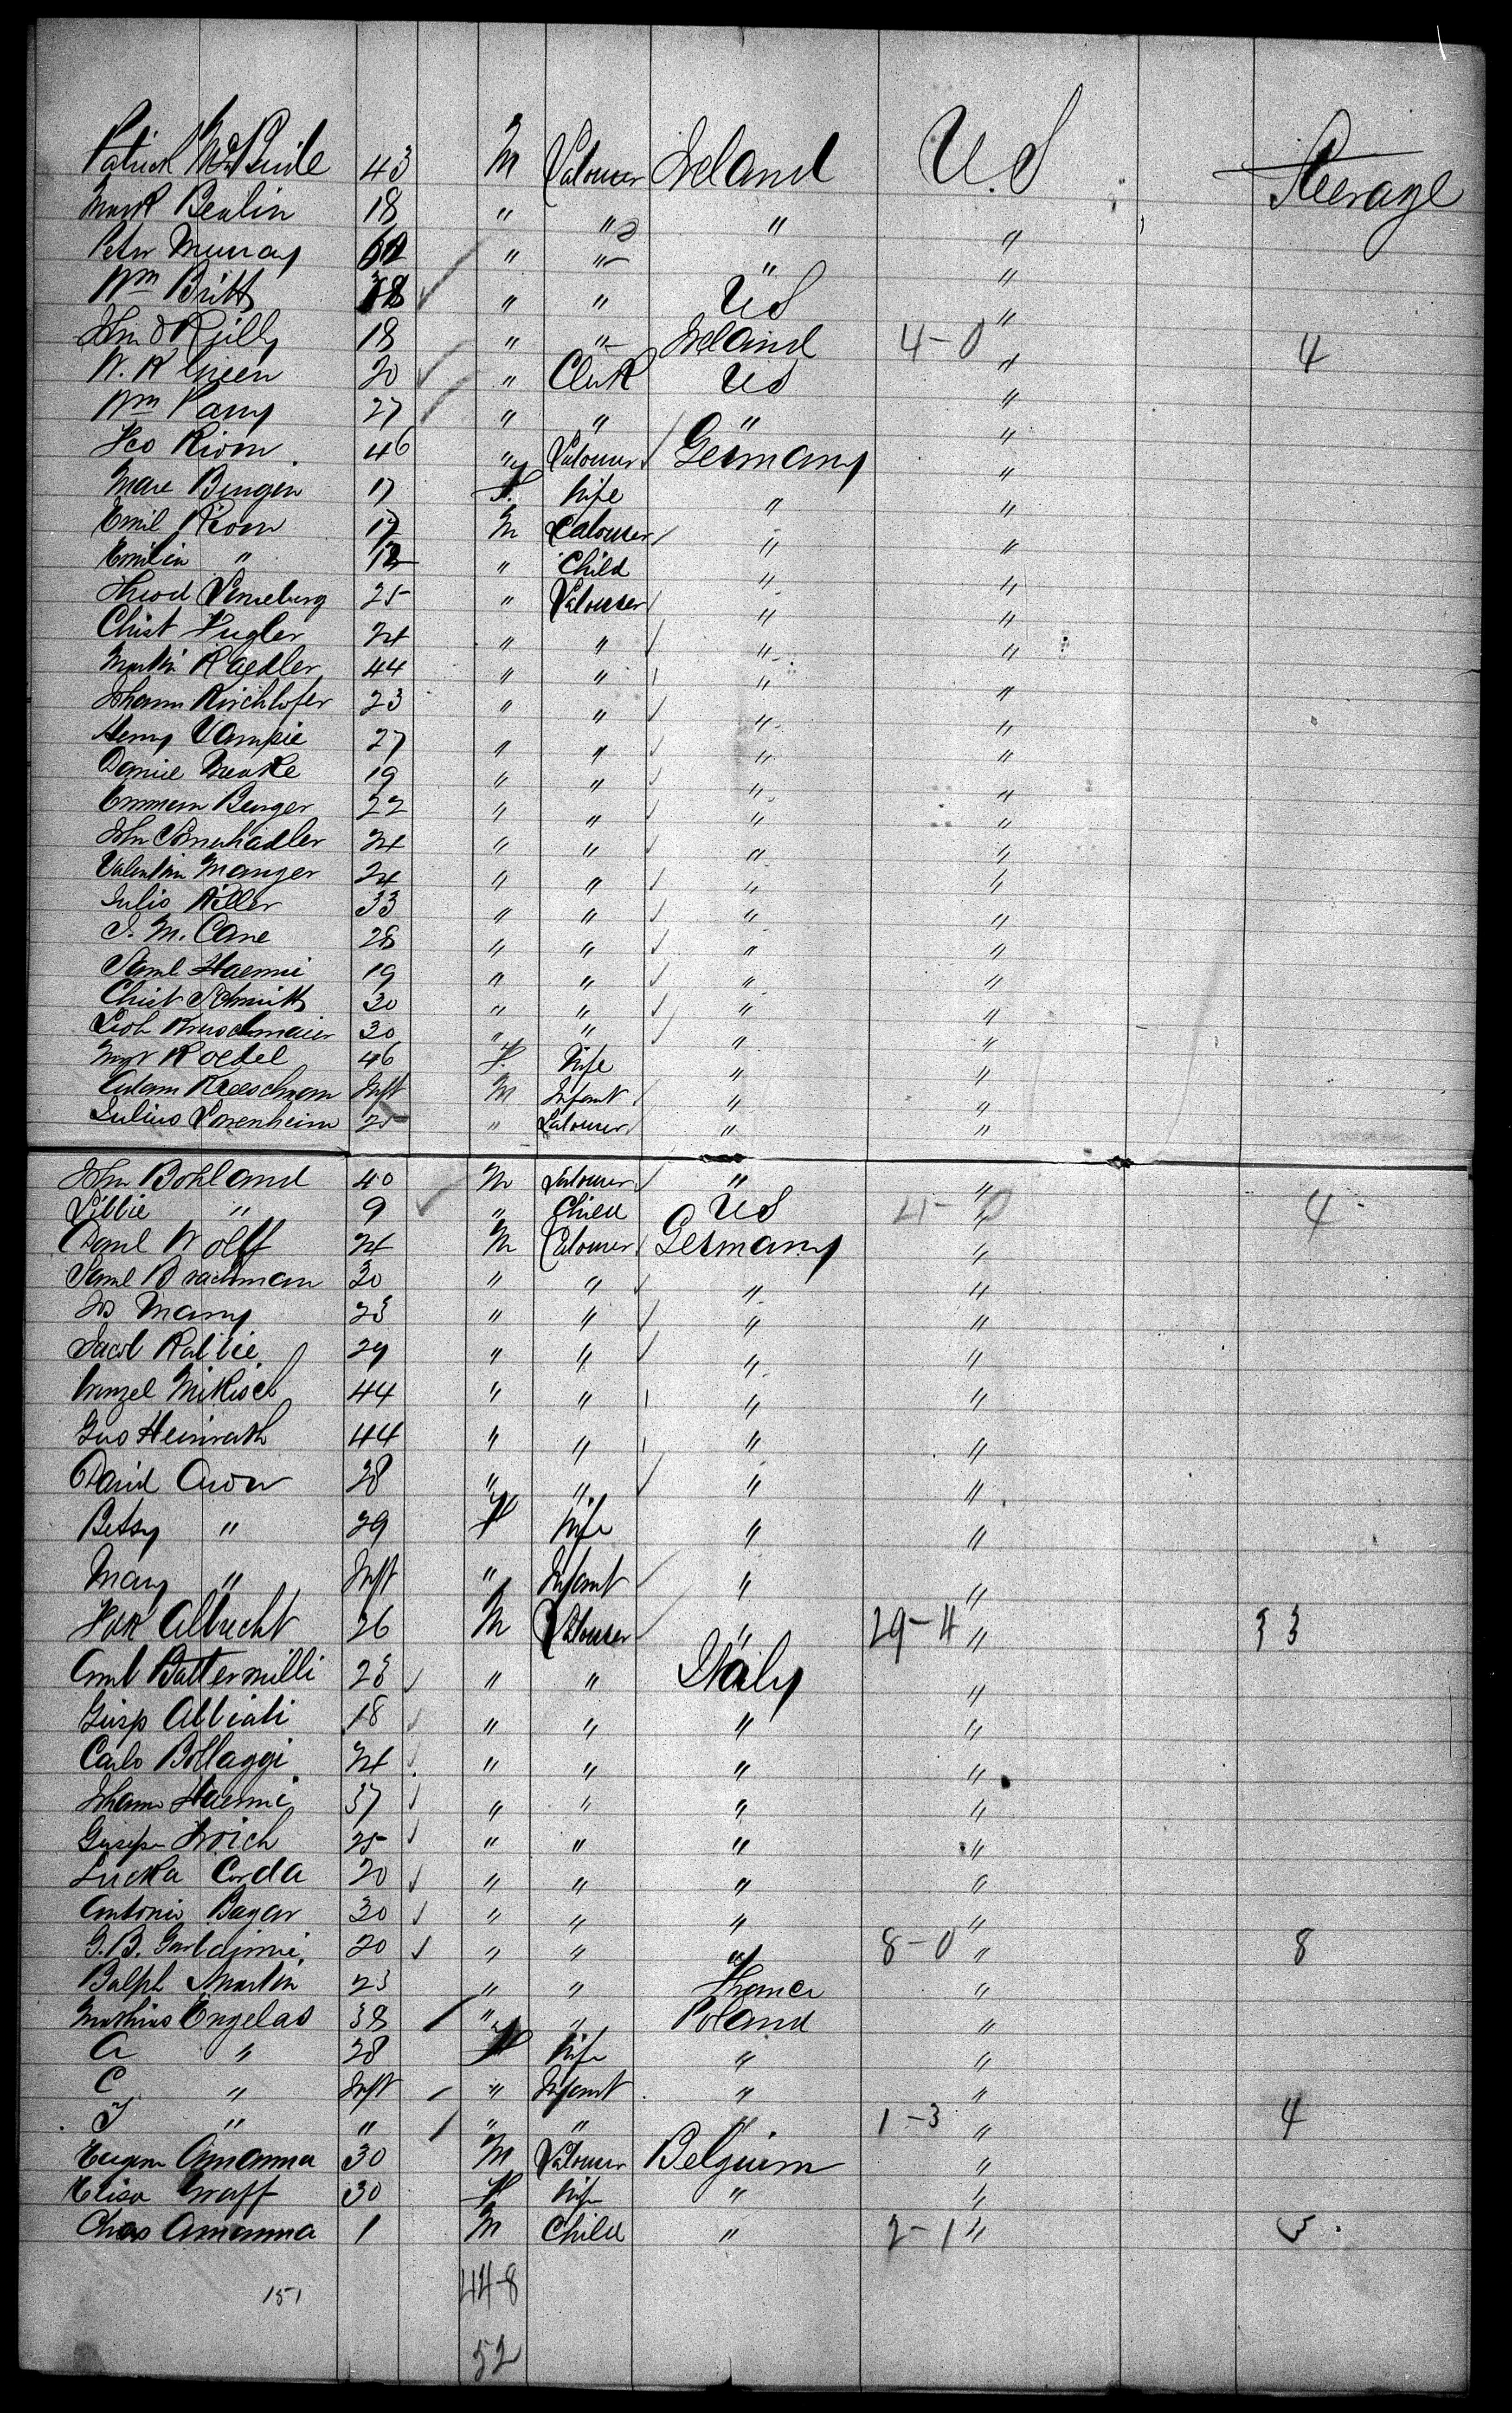 Patrick McBride 43 M Labourer Ireland U.S Steerage
Mark 18 " " " "
Peter Murray " " " "
Wm Britt 38 " " US "
John O Reilly 18 " " Ireland 4-0 " 4
W. R Green 20 " Clerk US "
Wm Parry 27 " " " "
Leo Riom 46 " Labourer Germany "
Marie Bingen 17 F. Wife " "
Emil Riom 17 M Labourer " "
Emilin " 12 " Child " "
Theod 25 " Labourer " "
Christ Kugler 24 " " " "
Martin Raedler 44 " " " "
Johann Kirchhofer 23 " " " "
Henry Vampie 27 " " " "
Daniel Menke 19 " " " "
Emmem Berger 22 " " " "
John 24 " " " "
Valentin Manger 24 " " " "
Julio 33 " " " "
J. M. Cane 28 " " " "
Saml Haenni 19 " " " "
Christ Schmitt 30 " " " "
30 " " " "
Roedel 46 F. Wife " "
Adam Kreeschmann Inft M Infant " "
Julius 25 " Labourer " "
John Bohland 40 M Labourer " "
Libbie " 9 " Child US 4-0 " 4
Paul Wolff 24 M Labourer Germany "
Saml Brachman 30 " " " "
Jos Many 23 " " " "
Jacob 29 " " " "
Wenzel Mikisch 44 " " " "
Gus Heinrath 44 " " " "
David Aron 28 " " " "
Betsy " 29 F Wife " "
Mary " Inft " Infant " "
Albrecht 26 M Labourer " 29-4 " 33
Battermilli 23 " " Italy "
Giusp Abbiati 18 " " " "
Carlo Bollaggi 24 " " " "
Johann Haenni 37 " " " "
Giusepe Troich 25 " " " "
Lucka Corda 20 " " " "
Antonio Bagar 30 " " " "
G.B. 20 " " " 8-0 " 8
Ralph Martin 23 " " France "
Mathias Engelas 38 " " Poland "
A " 28 F Wife " "
C " Inft " Infant " "
J " " " " " 1-3 " 4
Eugene Amanna 30 M Labourer Belgium "
Elisa Graff 30 F Wife " "
Chas Amanna 1 M Child " 2-1 " 3
151 44-8
52